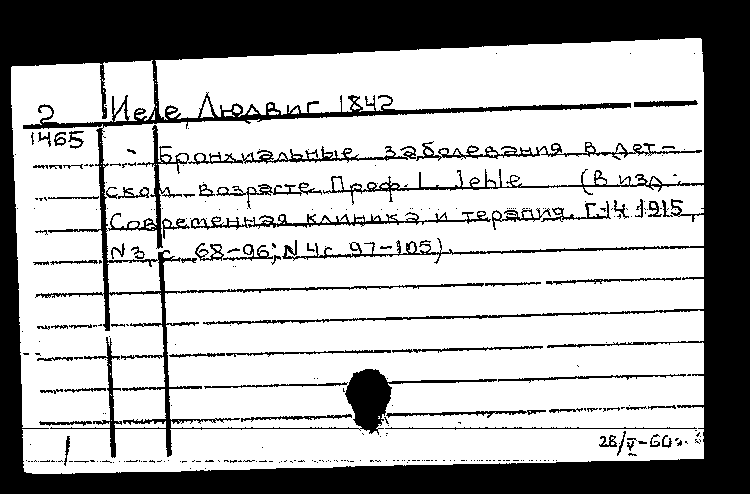 2 Иеле, Людвиг 1842
1465
- Бронхиальные заболевания в дет=
ском возрасте Проф. L. Jehle (В изд.:
Современная клиника и терапия. Г.14 1915,
N 3, с 68-96; N 4 с 97-105).
1
28/V-60г.